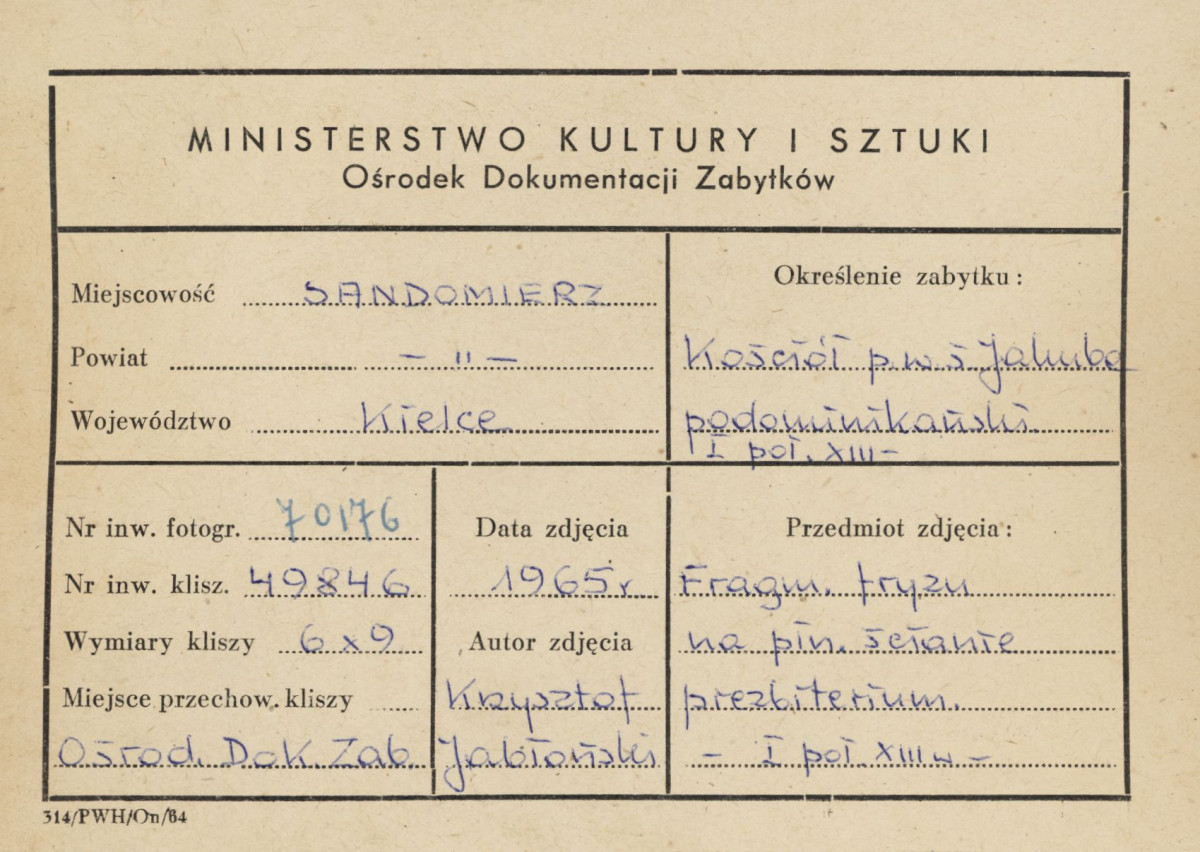 MINISTERSTWO KULTURY I SZTUKI
Ośrodek Dokumentacji Zabytków
Miejscowość SANDOMIERZ
Powiat – " –
Województwo Kielce
Określenie zabytku:
Kościół p.w.ś Jakuba
podominikański
I poł. XIII –
Nr inw. fotogr. 70176
Nr inw. klisz. 49846
Wymiary kliszy 6 x 9
Miejsce przechow. kliszy
Ośrod. Dok. Zab
Data zdjęcia
1965 r
Autor zdjęcia
Krzysztof
Jabłoński
Przedmiot zdjęcia:
Fragm. fryzu
na płn. ścianie
prezbiterium.
– I poł. XIII w –
314/PWH/On/64